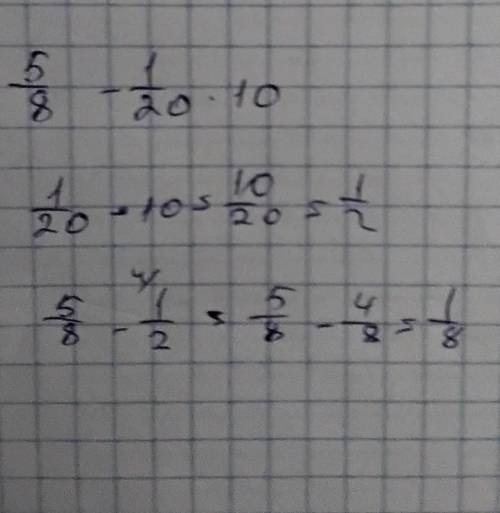 5/8 - 1/20 · 10
1/20 · 10 = 10/20 = 1/2
5/8 - 1/2 4/ = 5/8 - 4/8 = 1/8